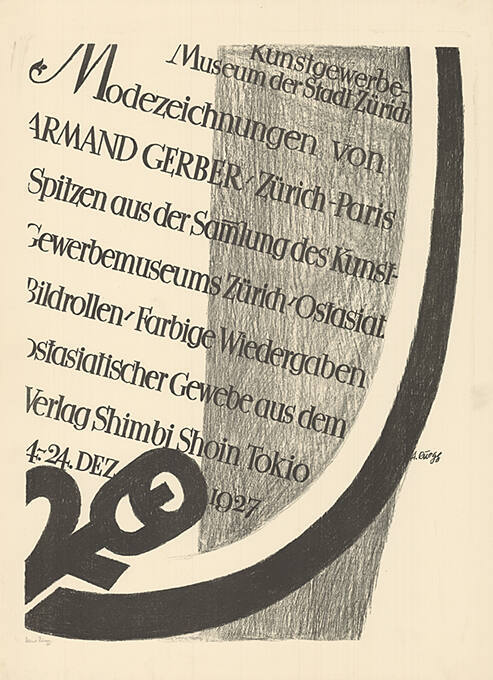 Kunstgewerbe-
Museum der Stadt Zürich
Modezeichnungen von
ARMAND GERBER / Zürich-Paris
Spitzen aus der Sam̅lung des Kunst-
Gewerbemuseums Zürich / Ostasiat
Bildrollen / Farbige Wiedergaben
ostasiatischer Gewebe aus dem
Verlag Shimbi Shoin Tokio
4.-24. DEZ. 1927